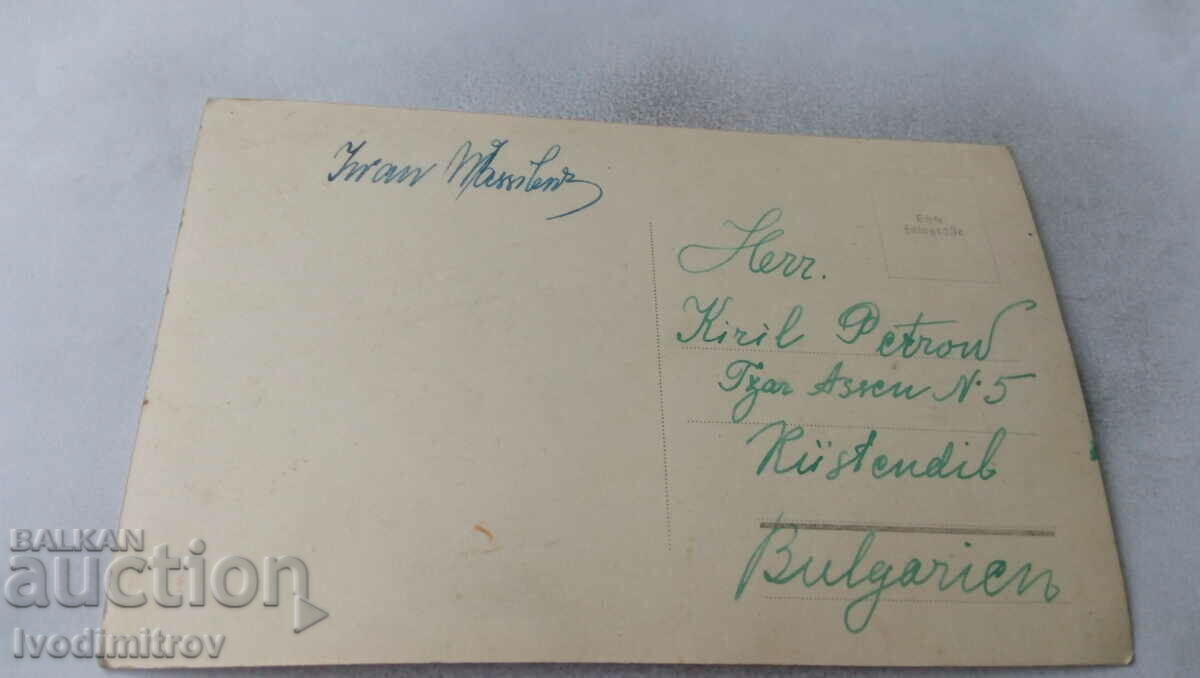 Iwan
Echte
Fotografie
Herr.
Kiril Petrow
Tzar Assen N. 5
Küstendil
Bulgarien
BALKAN
auction
Ivodimitrov